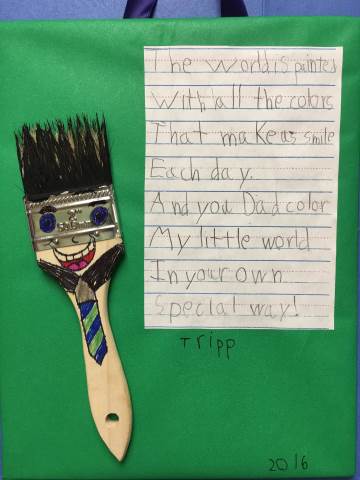 The world is painted
With all the colors
That make us smile
Each day.
And you Dad color
My little world
In your own
Special way!
Tripp
2016
2"